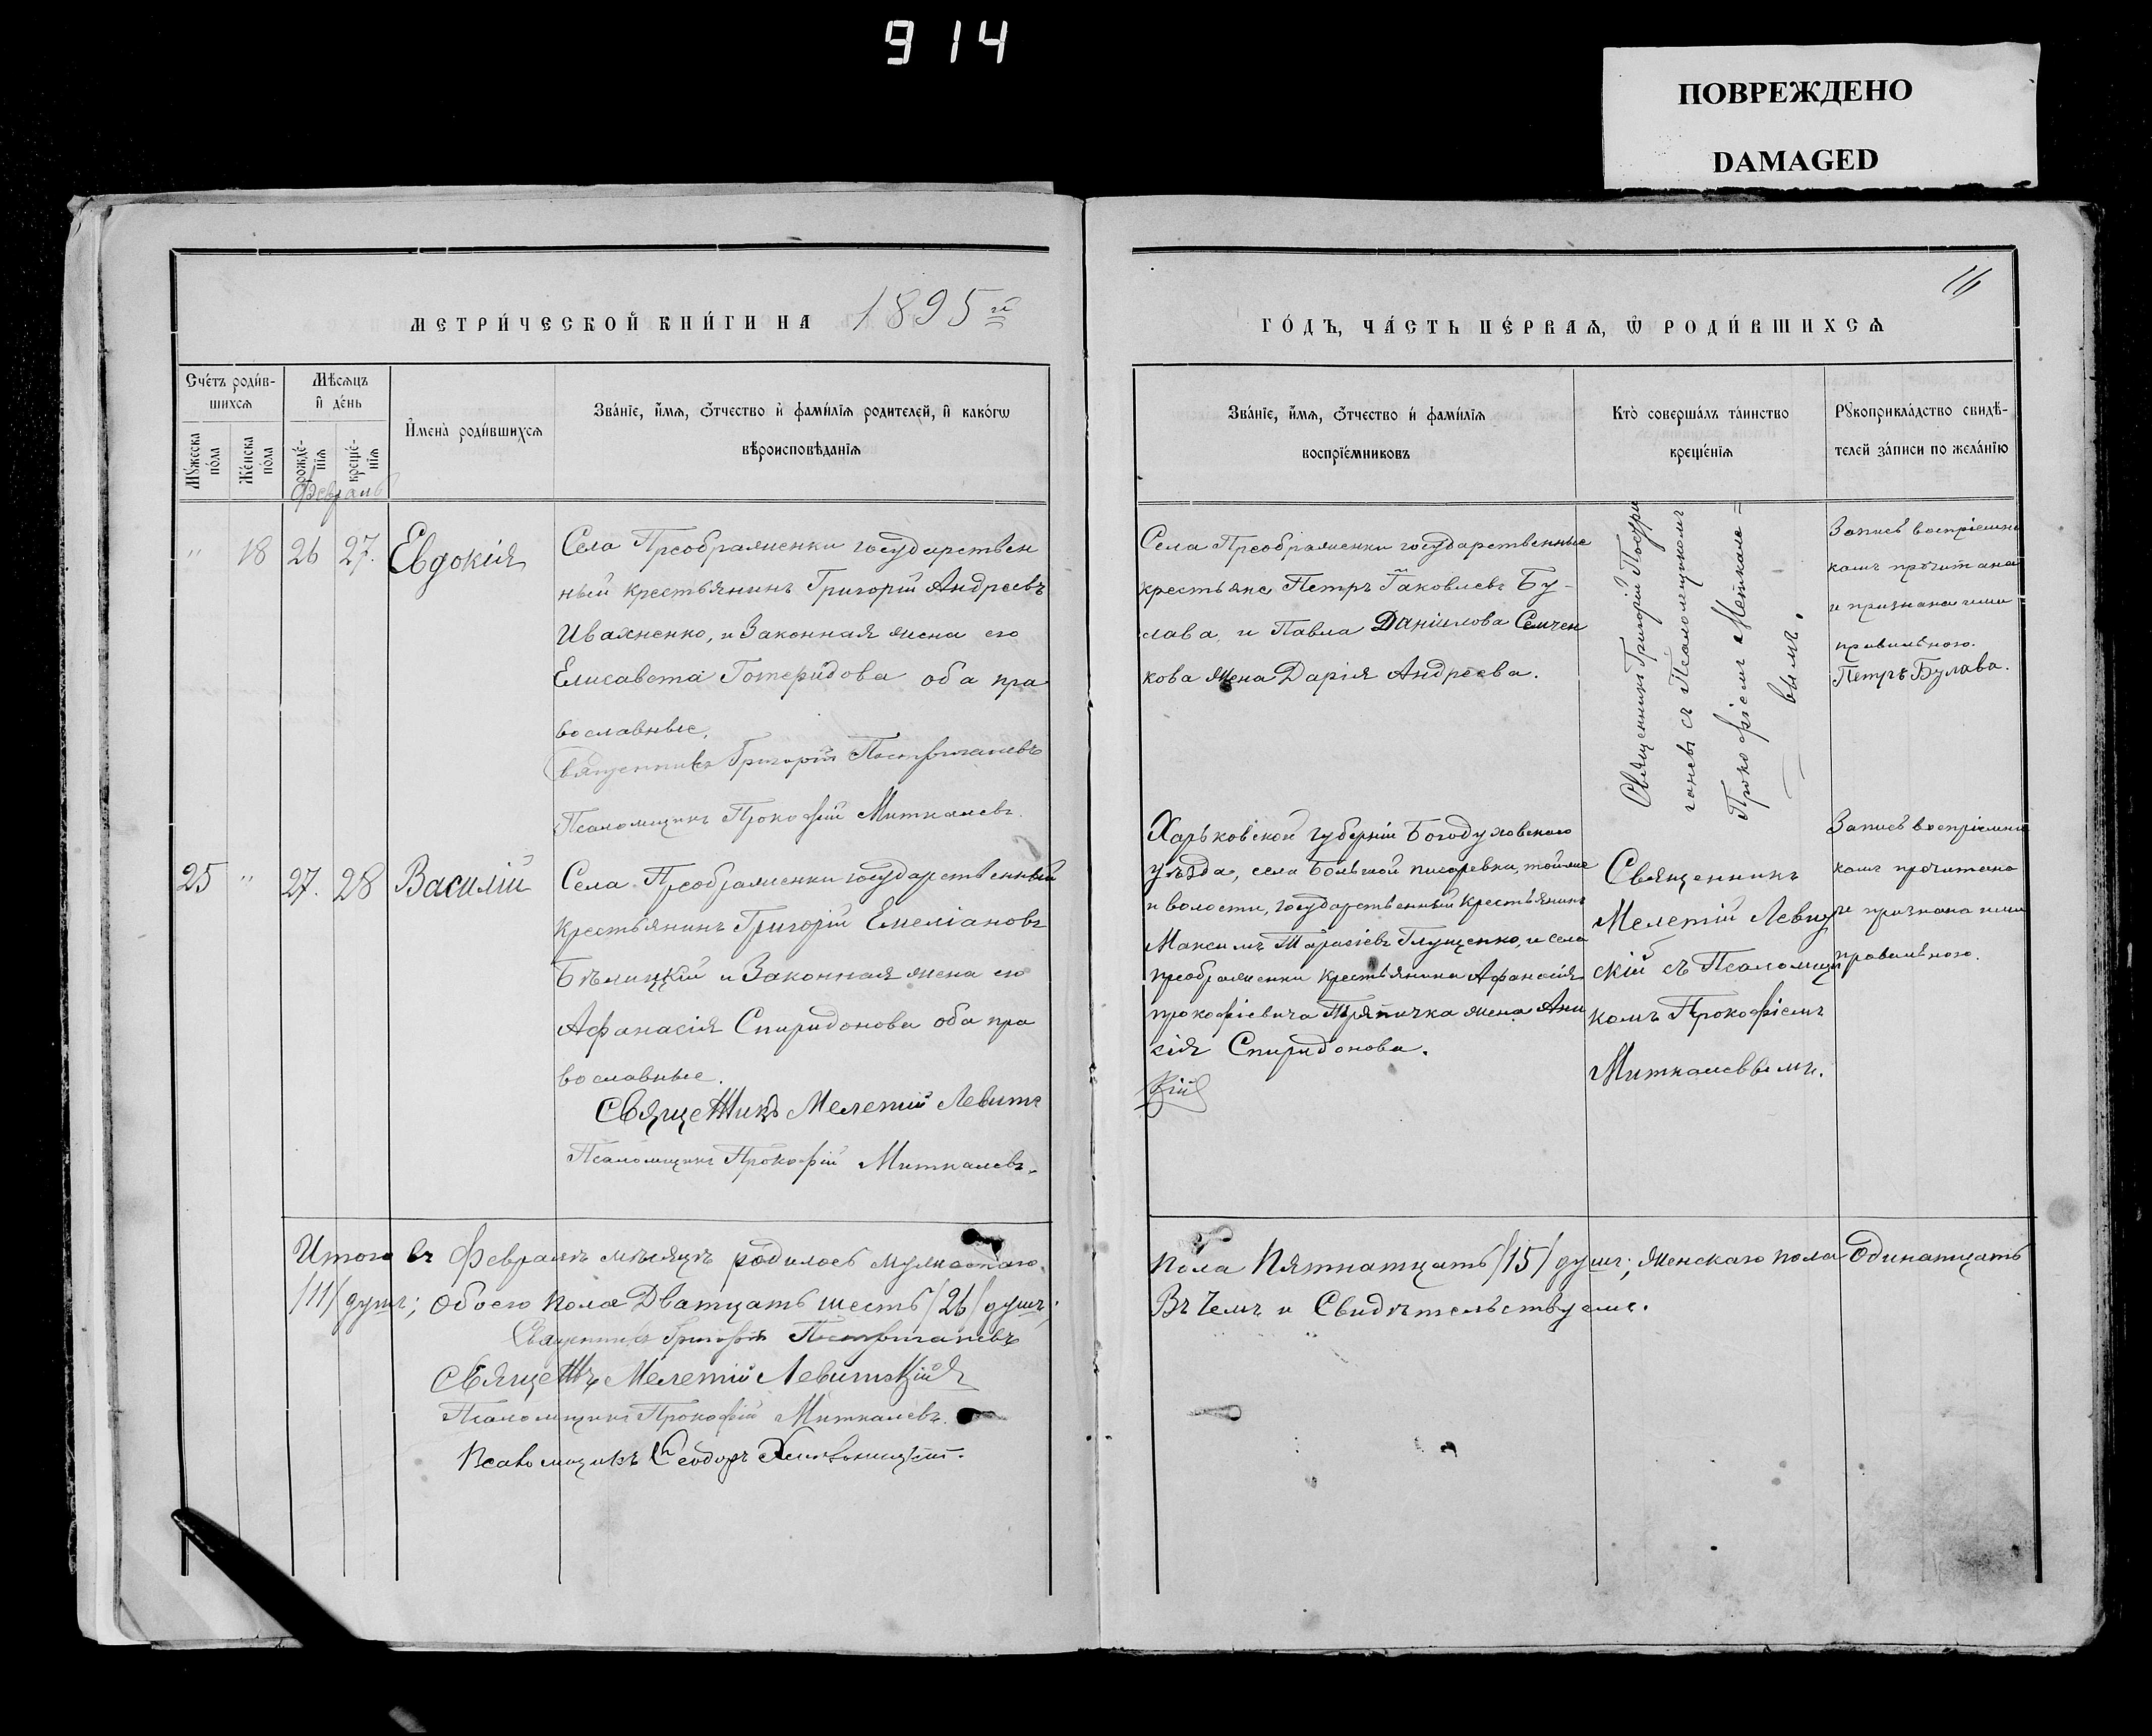 914
ПОВРЕЖДЕНО
DAMAGED
16
МЕТРИ́ЧЕСКОЙ КНИ́ГИ НА 1895й
ГО́ДЪ, ЧА́СТЬ ПЕ́РВАѦ, Ѽ РОДИ́ВШИХСѦ
Сче́тъ роди́в-
шихсѧ
Мꙋ́жеска
по́ла
Же́нска
по́ла
Мѣ́сѧцъ
и҆ де́нь
рожде́-
нїѧ
креще́-
нїѧ
И҆мена̀ роди́вшихсѧ
Зва́нїе, и҆́мѧ, ѻ҆́тчество и҆ фамі́лїѧ родителей, и҆ како́гѡ
вѣроисповѣ́данїѧ
Зва́нїе, и҆́мѧ, ѻ҆́тчество и҆ фамі́лїѧ
воспрїе́мниковъ
Кто̀ соверша́лъ та́инство
креще́нїѧ
Рꙋкоприкла́дство свидѣ́-
телей за́писи по жела́нїю
Февраль
" 18 26 27. Евдокія
Села Преображенки государствен
ный крестьянинъ Григорій Андреевъ
Ивахненко, и Законная жена его
Елисавета оба пра
вославные.
Священникъ Григорій
Псаломщикъ Прокофій Миткалевъ.
Села Преображенки государственные
крестьяне Петръ Іаковлевъ Бу-
лава, и Павла Даніилова Семчен
кова жена Дарія Андреева.
Священникъ Григорій
съ Псаломщикомъ
Прокофіемъ Миткале=
вымъ.
Запись воспріемни
камъ прочитана
и признана ими
правильною.
Петръ Булава.
25 " 27. 28 Василій
Села Преображенки государственный
крестьянинъ Григорій Емеліановъ
Бѣлицкій и Законная жена его
Афанасія Спиридонова оба пра
вославные.
Священникъ Мелетій Левит
Псаломщикъ Прокофій Миткалевъ.
Харьковской губерніи Богодуховскаго
уѣзда, села Большой писаревки, тойже
и волости, государственный крестьянинъ
Максимъ Тарасіевъ Глущенко, и села
преображенки крестьянина Афанасія
прокофіевича Тряпичка жена Ани
сія Спиридонова.
кій
Священникъ
Мелетій Левит
скій съ Псаломщи
комъ Прокофіемъ
Миткалевымъ.
Запись воспріемни
камъ прочитана
и признана ими
правильною.
Итого въ Февралѣ мѣсяцѣ родилось мужескаго
пола Пятнатцать /15/ душъ; женскаго пола Одинатцать
/11/ душъ; обоего пола Дватцать шесть /26/ душъ;
Въ чемъ и Свидѣтельствуемъ.
Священникъ Григорій
Мелетій Левитскій
Псаломщикъ Прокофій Миткалевъ.
Псаломщикъ Ѳеодоръ